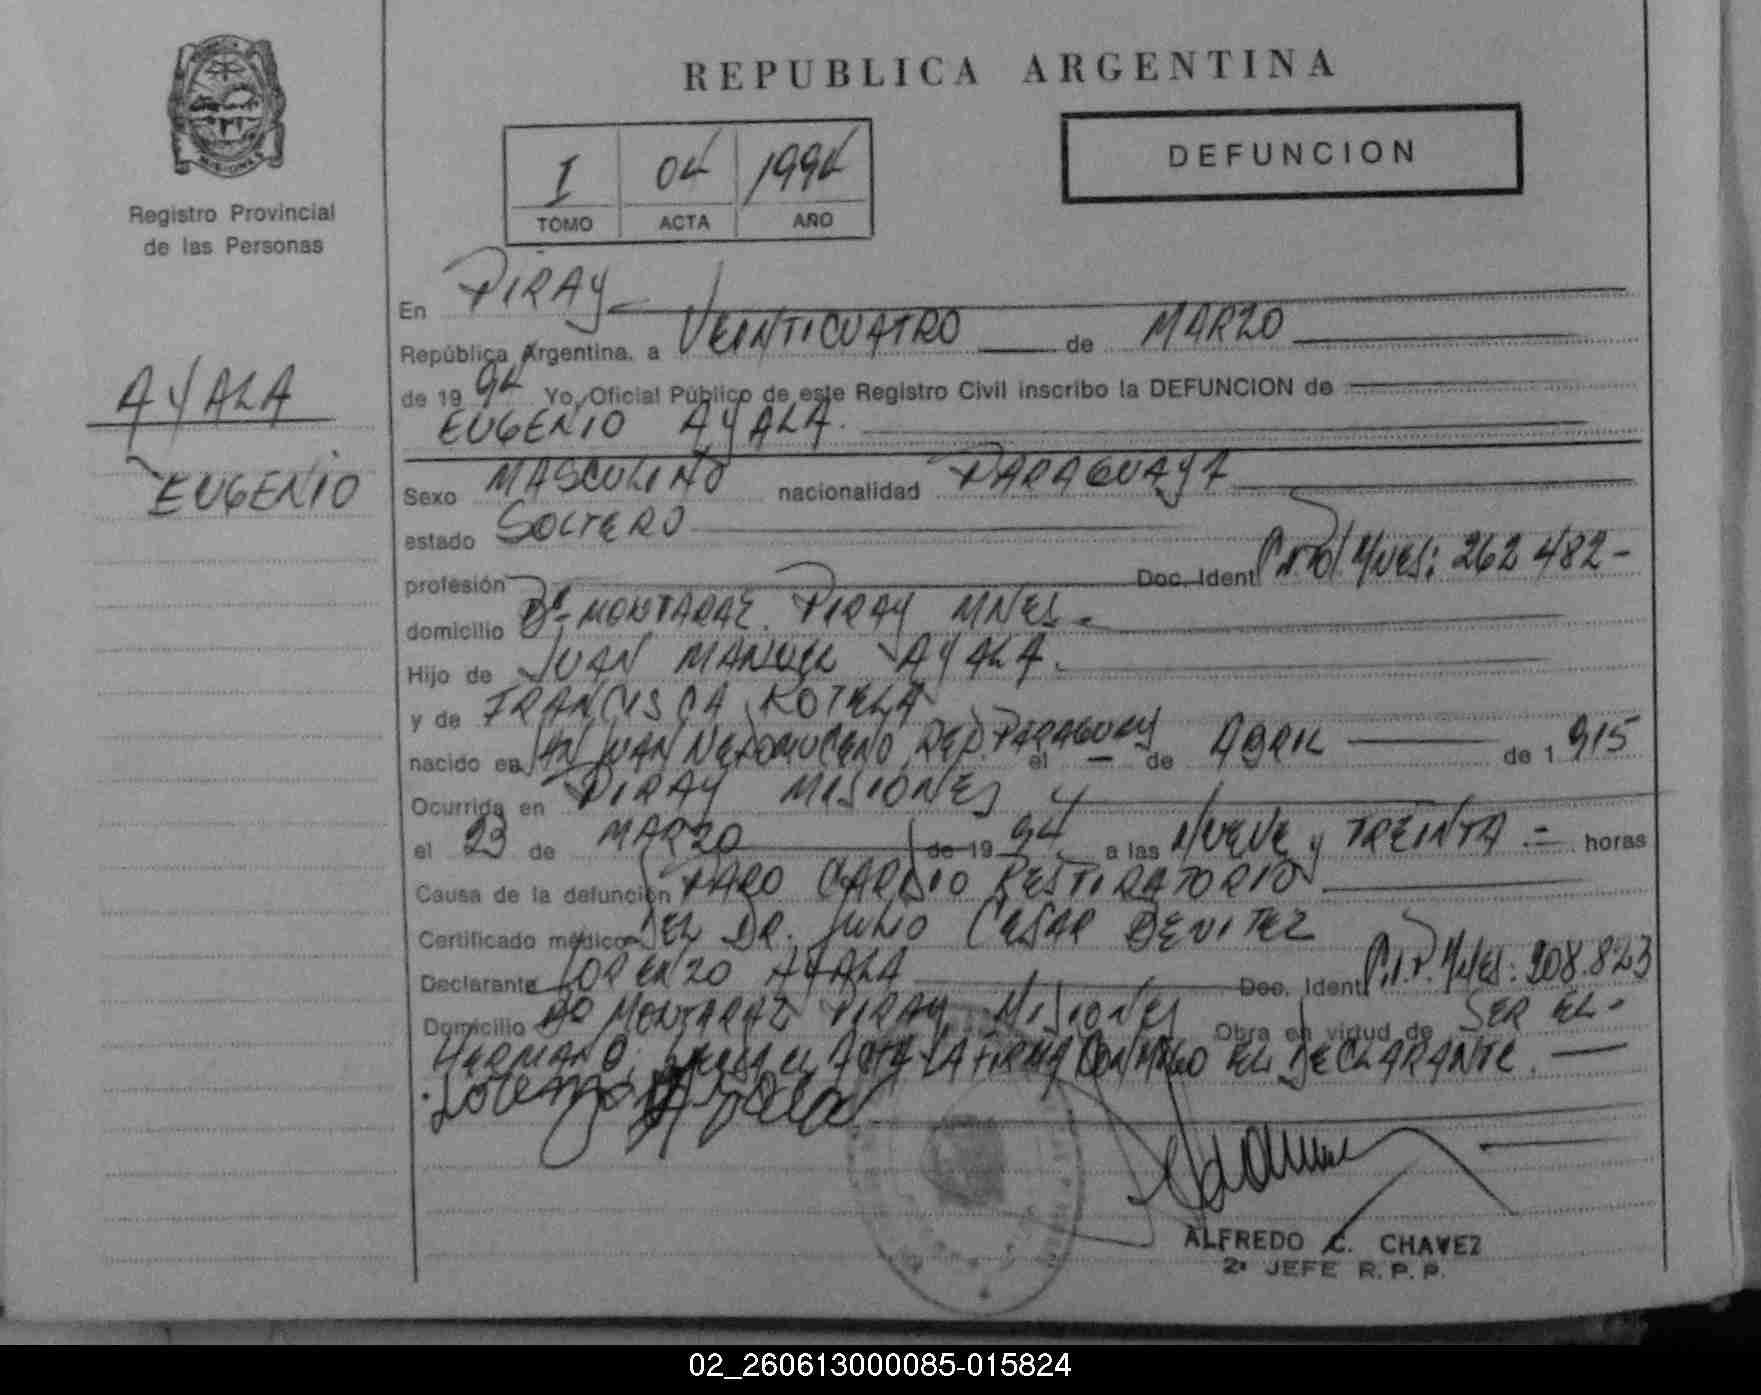 REPUBLICA ARGENTINA
DEFUNCION
I 04 1994
TOMO ACTA AÑO
MISIONES
Registro Provincial
de las Personas
AYALA
EUGENIO
En PIRAY
República Argentina, a VEINTICUATRO de MARZO
de 19 94 Yo, Oficial Público de este Registro Civil inscribo la DEFUNCION de
EUGENIO AYALA.
Sexo MASCULINO nacionalidad PARAGUAYA
estado SOLTERO
profesión Doc. Ident 262 482-
domicilio Bº MONTARAZ. PIRAY MNES.-
Hijo de JUAN MANUEL AYALA.
y de FRANCISCA ROTELA
nacido en SAN JUAN NEPOMUCENO REP. PARAGUAY el - de ABRIL de 1 915
Ocurrida en PIRAY MISIONES
el 23 de MARZO de 19 94 a las NUEVE y TREINTA.= horas
Causa de la defunción PARO CARDIO RESPIRATORIO
Certificado médico DEL DR. JULIO CESAR BENITEZ
Declarante LORENZO AYALA Doc. Ident C.I.P. Mnes: 208.823
Domicilio Bº MONTARAZ PIRAY MISIONES Obra en virtud de SER EL-
HERMANO. EL ACTA LA FIRMA CONMIGO EL DECLARANTE.
Lorenzo Ayala
ALFREDO C. CHAVEZ
2º JEFE R.P.P.
02_260613000085-015824